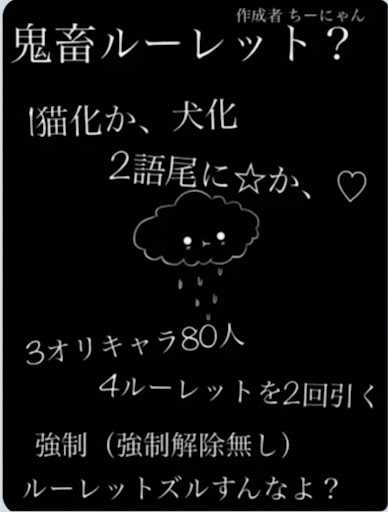 作成者 ちーにゃん
鬼畜ルーレット？
1猫化か、犬化
2語尾に☆か、♡
3オリキャラ80人
4ルーレットを2回引く
強制（強制解除無し）
ルーレットズルすんなよ？